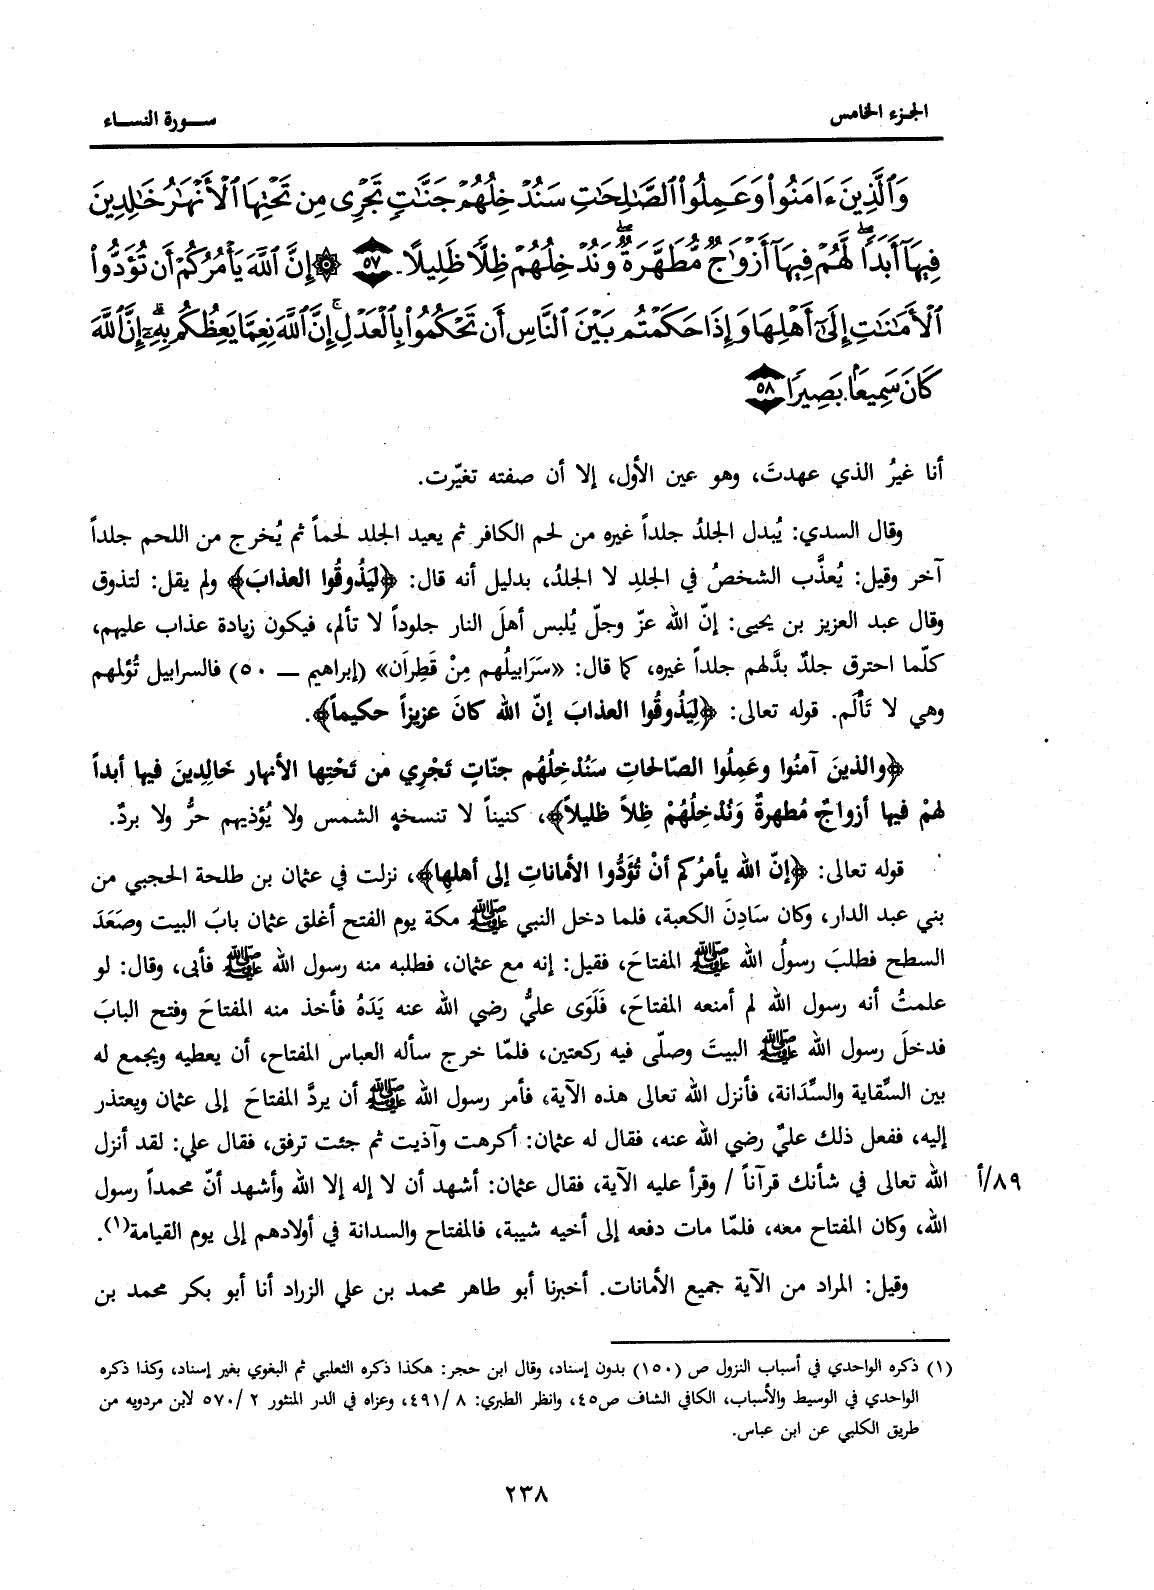 الجزء الخامس
سورة النساء
وَٱلَّذِينَ ءَامَنُوا۟ وَعَمِلُوا۟ ٱلصَّٰلِحَٰتِ سَنُدْخِلُهُمْ جَنَّٰتٍ تَجْرِى مِن تَحْتِهَا ٱلْأَنْهَٰرُ خَٰلِدِينَ
فِيهَآ أَبَدًا ۖ لَّهُمْ فِيهَآ أَزْوَٰجٌ مُّطَهَّرَةٌ ۖ وَنُدْخِلُهُمْ ظِلًّا ظَلِيلًا ٥٧ ۞ إِنَّ ٱللَّهَ يَأْمُرُكُمْ أَن تُؤَدُّوا۟
ٱلْأَمَٰنَٰتِ إِلَىٰٓ أَهْلِهَا وَإِذَا حَكَمْتُم بَيْنَ ٱلنَّاسِ أَن تَحْكُمُوا۟ بِٱلْعَدْلِ ۚ إِنَّ ٱللَّهَ نِعِمَّا يَعِظُكُم بِهِۦٓ ۗ إِنَّ ٱللَّهَ
كَانَ سَمِيعًۢا بَصِيرًا ٥٨
أنا غيرُ الذي عهدتَ، وهو عين الأول، إلا أن صفته تغيّرت.
وقال السدي: يُبدل الجلدُ جلداً غيره من لحم الكافر ثم يعيد الجلد لحماً ثم يُخرج من اللحم جلداً
آخر وقيل: يُعذَّب الشخصُ في الجلدِ لا الجلدُ، بدليل أنه قال: ﴿لَيَذُوقُوا العذابَ﴾ ولم يقل: لتذوق
وقال عبد العزيز بن يحيى: إنّ الله عزّ وجلّ يُلبس أهلَ النار جلوداً لا تألم، فيكون زيادة عذاب عليهم،
كلّما احترق جلدٌ بدَّلهم جلداً غيره، كما قال: «سَرَابيلُهم مِنْ قَطِرانَ» (إبراهيم ــ ٥٠) فالسرابيل تُؤلمهم
وهي لا تَأْلَم. قوله تعالى: ﴿لِيَذُوقُوا العذابَ إنّ الله كانَ عزيزاً حكيماً﴾.
﴿والذينَ آمنُوا وعَمِلُوا الصّالحاتِ سَنُدْخِلُهُم جنّاتٍ تَجْرِي من تَحْتِها الأنهار خَالِدِينَ فيها أبداً
لهمْ فيها أزواجٌ مُطهرةٌ وَنُدْخِلُهُمْ ظِلاً ظليلاً﴾، كنيناً لا تنسخه الشمس ولا يُؤذيهم حرُّ ولا بردٌ.
قوله تعالى: ﴿إنّ الله يأمرُكم أنْ تُؤَدُّوا الأماناتِ إلى أهلها﴾، نزلت في عثمان بن طلحة الحجبي من
بني عبد الدار، وكان سَادِنَ الكعبة، فلما دخل النبي ﷺ مكة يوم الفتح أغلق عثمان بابَ البيت وصَعَدَ
السطح فطلبَ رسولُ الله ﷺ المفتاحَ، فقيل: إنه مع عثمان، فطلبه منه رسول الله ﷺ فأبى، وقال: لو
علمتُ أنه رسول الله لم أمنعه المفتاحَ، فَلَوَى عليُّ رضي الله عنه يَدَهُ فأخذ منه المفتاحَ وفتح البابَ
فدخلَ رسول الله ﷺ البيتَ وصلّى فيه ركعتين، فلمّا خرج سأله العباس المفتاح، أن يعطيه ويجمع له
بين السِّقاية والسِّدَانة، فأنزل الله تعالى هذه الآية، فأمر رسول الله ﷺ أن يردَّ المفتاحَ إلى عثمان ويعتذر
إليه، ففعل ذلك عليٌ رضي الله عنه، فقال له عثمان: أكرهت وآذيت ثم جئت ترفق، فقال علي: لقد أنزل
الله تعالى في شأنك قرآناً / وقرأ عليه الآية، فقال عثمان: أشهد أن لا إله إلا الله وأشهد أنّ محمداً رسول
٨٩/أ
الله، وكان المفتاح معه، فلمّا مات دفعه إلى أخيه شيبة، فالمفتاح والسدانة في أولادهم إلى يوم القيامة(١).
وقيل: المراد من الآية جميع الأمانات. أخبرنا أبو طاهر محمد بن علي الزراد أنا أبو بكر محمد بن
(١) ذكره الواحدي في أسباب النزول ص (١٥٠) بدون إسناد، وقال ابن حجر: هكذا ذكره الثعلبي ثم البغوي بغير إسناد، وكذا ذكره
الواحدي في الوسيط والأسباب، الكافي الشاف ص٤٥، وانظر الطبري: ٨ /٤٩١، وعزاه في الدر المنثور ٢ /٥٧٠ لابن مردويه من
طريق الكلبي عن ابن عباس.
٢٣٨